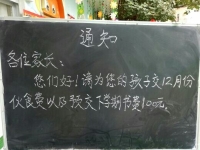 通知
各位家长:
您们好!请为您的孩子交12月份
伙食费以及预交下学期书费100元。